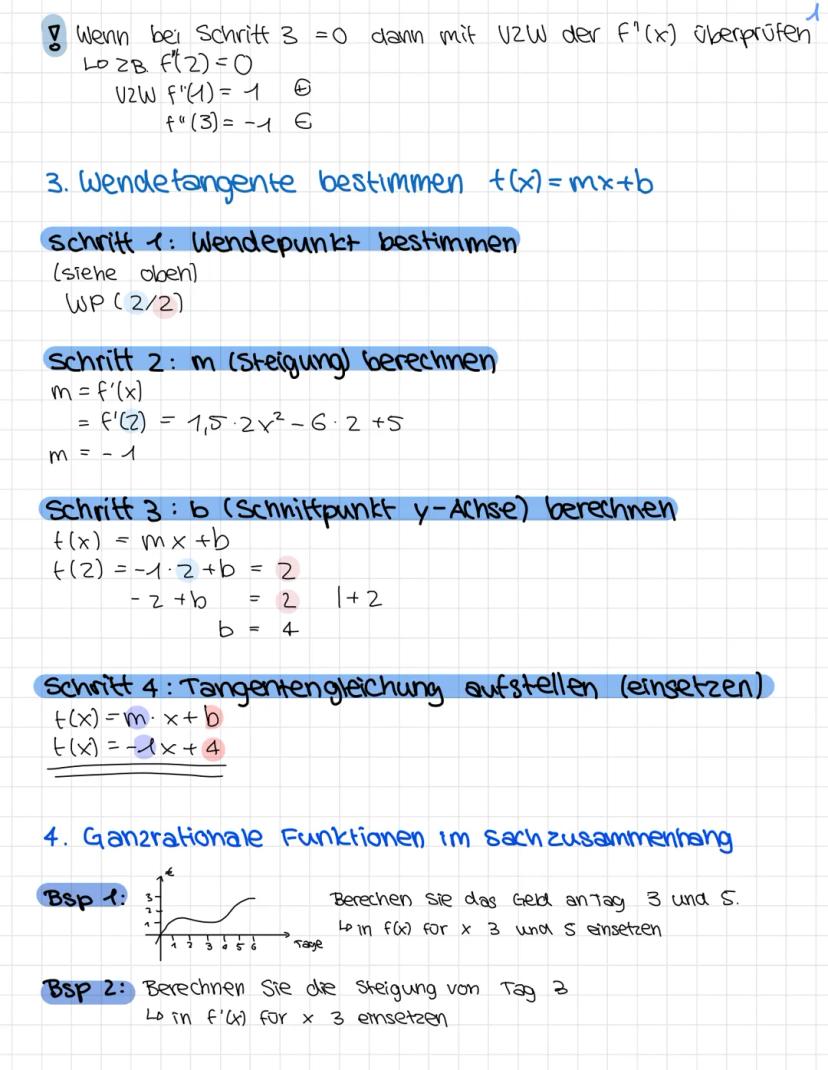 1
! Wenn bei Schritt 3 =0 dann mit VZW der f"(x) überprüfen
↳ zB. f"(2)=0
VZW f"(1)= 1 ⊕
f"(3)= -1 ⊖
3. Wendetangente bestimmen t(x)=mx+b
Schritt 1: Wendepunkt bestimmen
(siehe oben)
WP (2/2)
Schritt 2: m (Steigung) berechnen
m = f'(x)
= f'(2) = 1,5·2x²-6·2+5
m = -1
Schritt 3: b (Schnittpunkt y-Achse) berechnen
t(x) = mx+b
t(2) = -1·2+b = 2
-2+b = 2 |+2
b = 4
Schritt 4: Tangentengleichung aufstellen (einsetzen)
t(x)=m·x+b
t(x)=-1x+4
4. Ganzrationale Funktionen im Sachzusammenhang
Bsp 1: Berechen Sie das Geld an Tag 3 und 5.
↳ in f(x) für x 3 und 5 einsetzen
€
3
2
1
1 2 3 4 5 6 Tage
Bsp 2: Berechnen Sie die Steigung von Tag 3
↳ in f'(x) für x 3 einsetzen